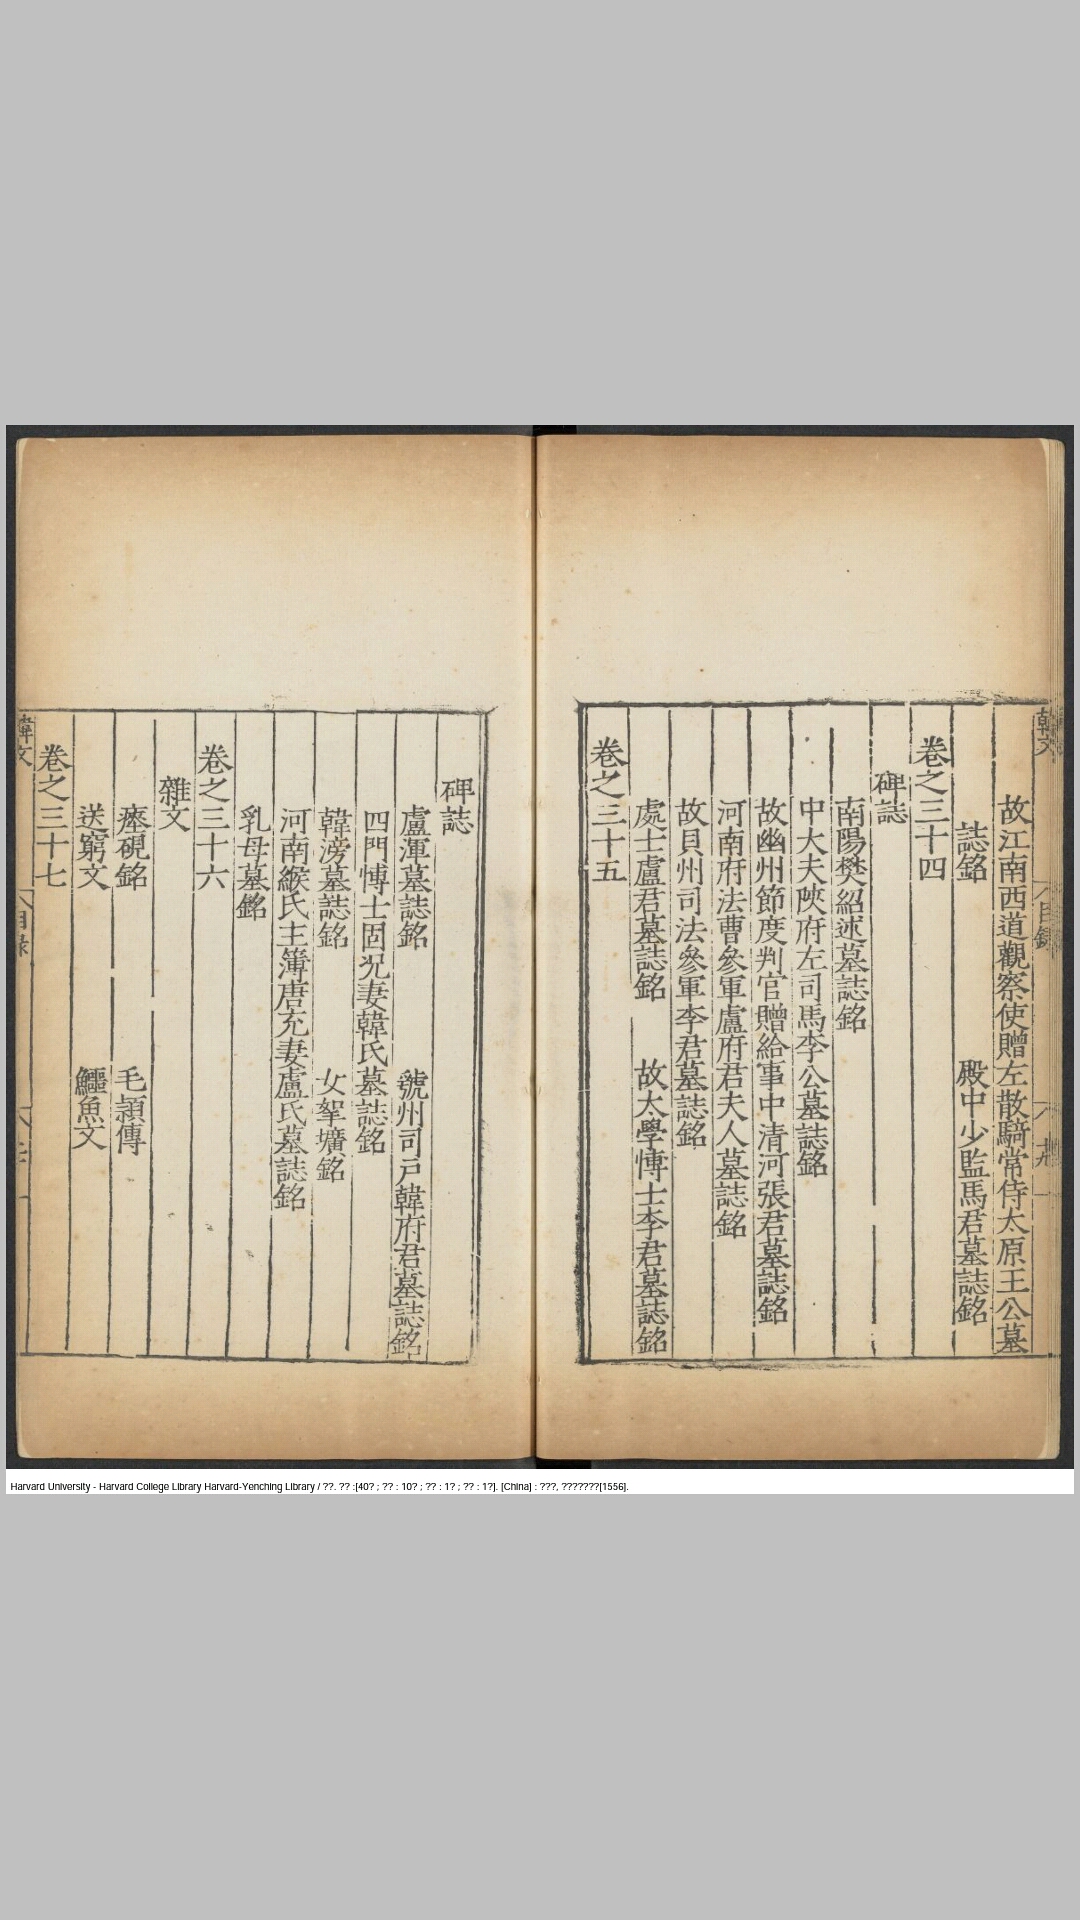 韓文
目録
故江南西道觀察使贈左散騎常侍太原王公墓
誌銘 殿中少監馬君墓誌銘
卷之三十四
碑誌
南陽樊紹述墓誌銘
中大夫陝府左司馬李公墓誌銘
故幽州節度判官贈給事中清河張君墓誌銘
河南府法曹參軍盧府君夫人墓誌銘
故貝州司法參軍李君墓誌銘
處士盧君墓誌銘 故太學愽士李君墓誌銘
卷之三十五
碑誌
盧渾墓誌銘 虢州司戸韓府君墓誌銘
四門愽士固况妻韓氏墓誌銘
韓滂墓誌銘 女挐壙銘
河南緱氏主簿唐充妻盧氏墓誌銘
乳母墓銘
卷之三十六
雜文
瘞硯銘 毛頴傳
送窮文 鱷魚文
卷之三十七
韓文
目録
Harvard University - Harvard College Library Harvard-Yenching Library / ??. ?? :[40? ; ?? : 10? ; ?? : 1? ; ?? : 1?]. [China] : ???, ???????[1556].